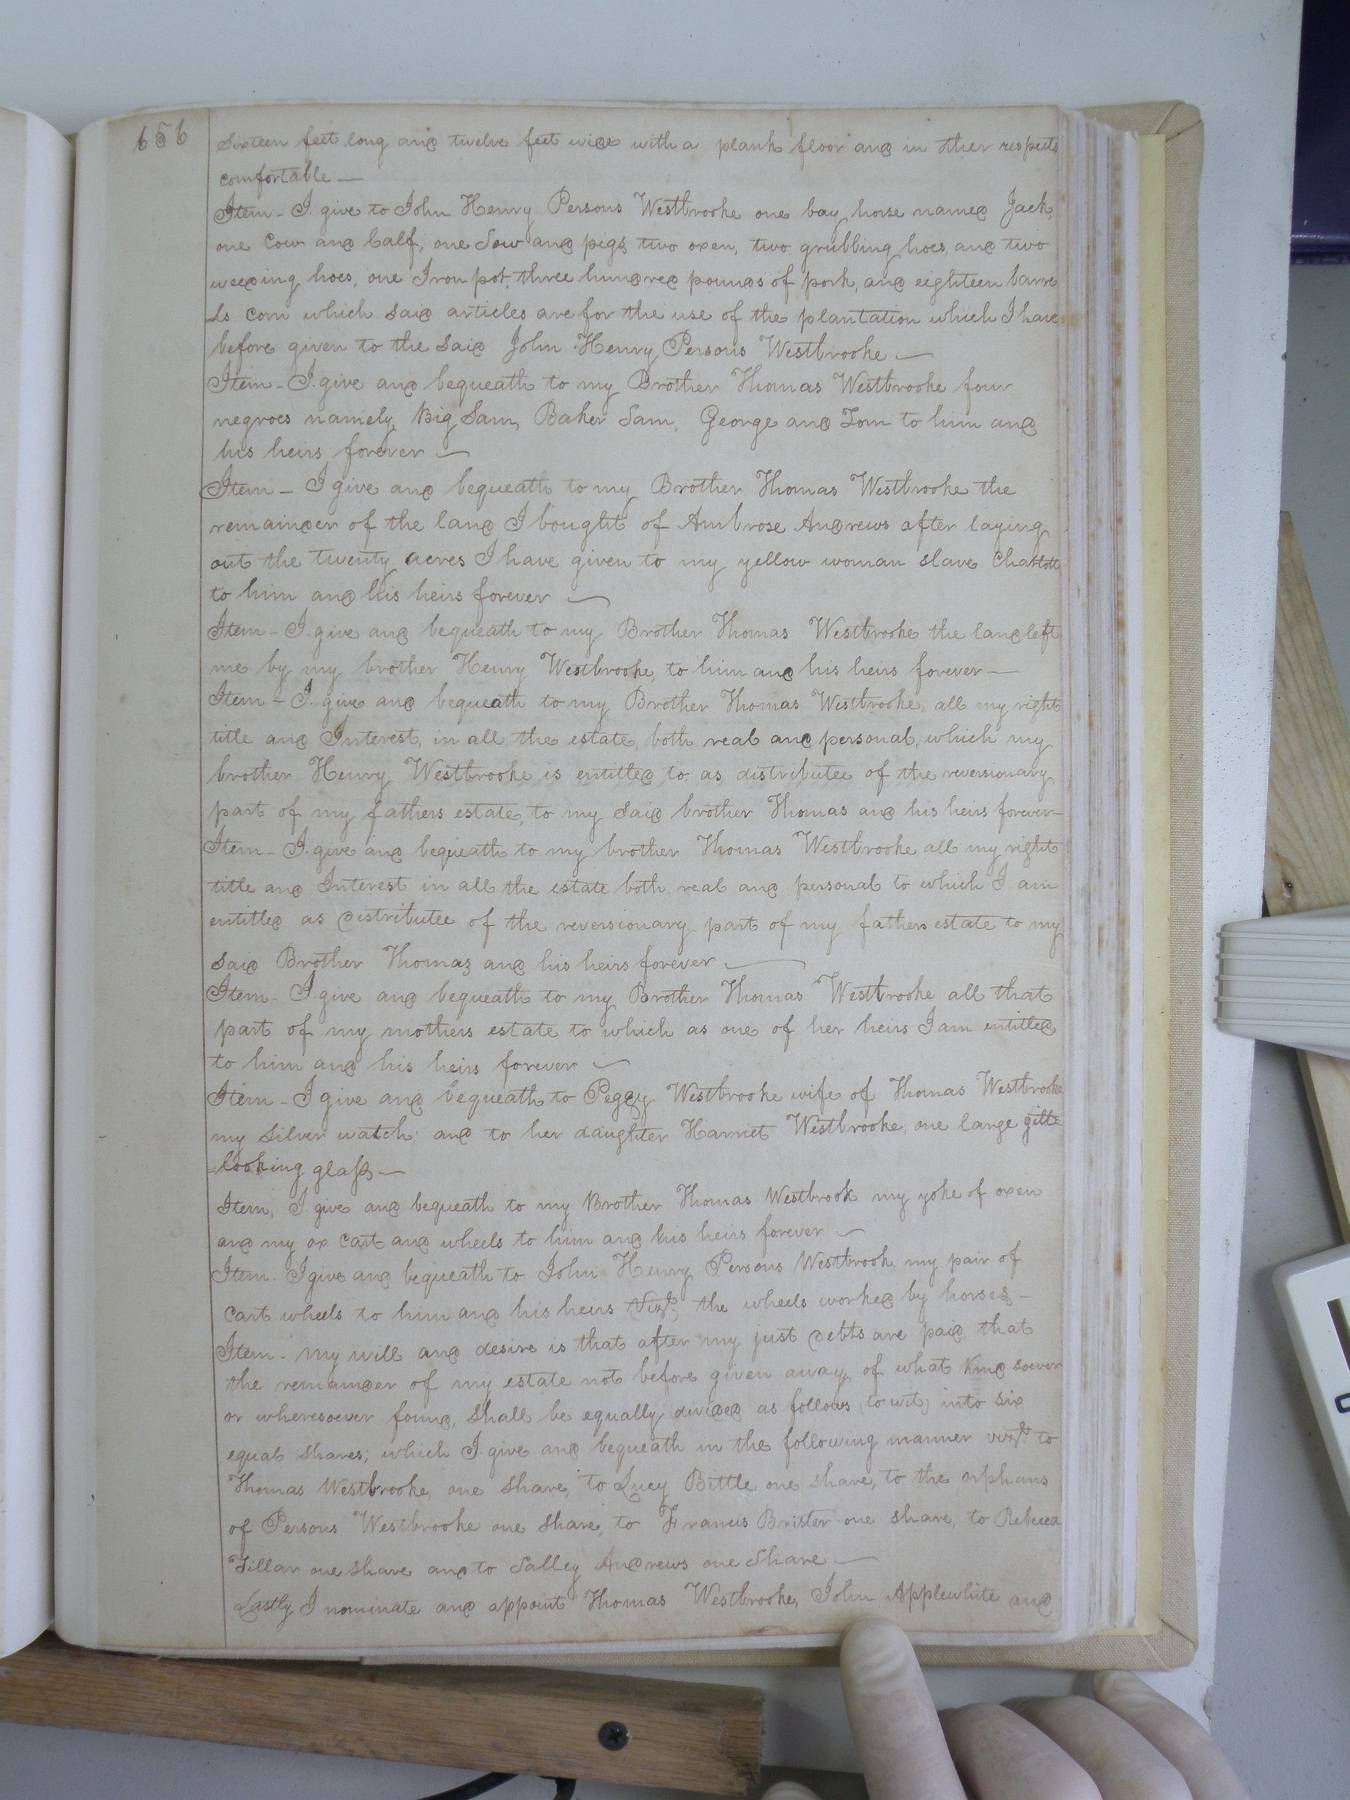 656
Sixteen feet long and twelve feet wide with a plank floor and in other respects
comfortable —
Item – I give to John Henry Persons Westbrooke one bay horse named Jack,
one Cow and Calf, one Sow and pigs, two oxen, two grubbing hoes, and two
weeding hoes, one Iron pot, three hundred pounds of pork, and eighteen barre
ls corn which said articles are for the use of the plantation which I have
before given to the said John Henry Persons Westbrooke —
Item – I give and bequeath to my Brother Thomas Westbrooke four
negroes namely, Big Sam, Baker Sam, George and Tom to him and
his heirs forever —
Item – I give and bequeath to my Brother Thomas Westbrooke the
remainder of the land I bought of Ambrose Andrews after laying
out the twenty acres I have given to my yellow woman slave Charlott
to him and his heirs forever —
Item – I give and bequeath to my Brother Thomas Westbrooke the land left
me by my brother Henry Westbrooke, to him and his heirs forever —
Item – I give and bequeath to my Brother Thomas Westbrooke, all my right
title and Interest, in all the estate, both real and personal, which my
brother Henry Westbrooke is entitled to as distributee of the reversionary
part of my fathers estate, to my said brother Thomas and his heirs forever–
Item – I give and bequeath to my brother Thomas Westbrooke all my right
title and Interest in all the estate both real and personal to which I am
entitled as distributee of the reversionary part of my fathers estate to my
said Brother Thomas and his heirs forever —
Item – I give and bequeath to my Brother Thomas Westbrooke all that
part of my mothers estate to which as one of her heirs I am entitled
to him and his heirs forever —
Item – I give and bequeath to Peggy Westbrooke wife of Thomas Westbrooke
my Silver watch; and to her daughter Harriet Westbrooke, one large gilte
looking glass —
Item, I give and bequeath to my Brother Thomas Westbrook my yoke of oxen
and my ox cart and wheels to him and his heirs forever —
Item – I give and bequeath to John Henry Persons Westbrook, my pair of
cart wheels to him and his heirs Vizt. the wheels worked by horses –
Item – My will and desire is that after my just debts are paid, that
the remainder of my estate not before given away, of what kind soever
or wheresoever found, shall be equally divided as follows (to wit) into six
equal shares; which I give and bequeath in the following manner vizt. to
Thomas Westbrooke, one share, to Lucy Bittle one share, to the orphans
of Persons Westbrooke one share, to Francis Brister one share, to Rebecca
Tillar one share and to Salley Andrews one Share —
Lastly I nominate and appoint Thomas Westbrooke, John Applewhite and